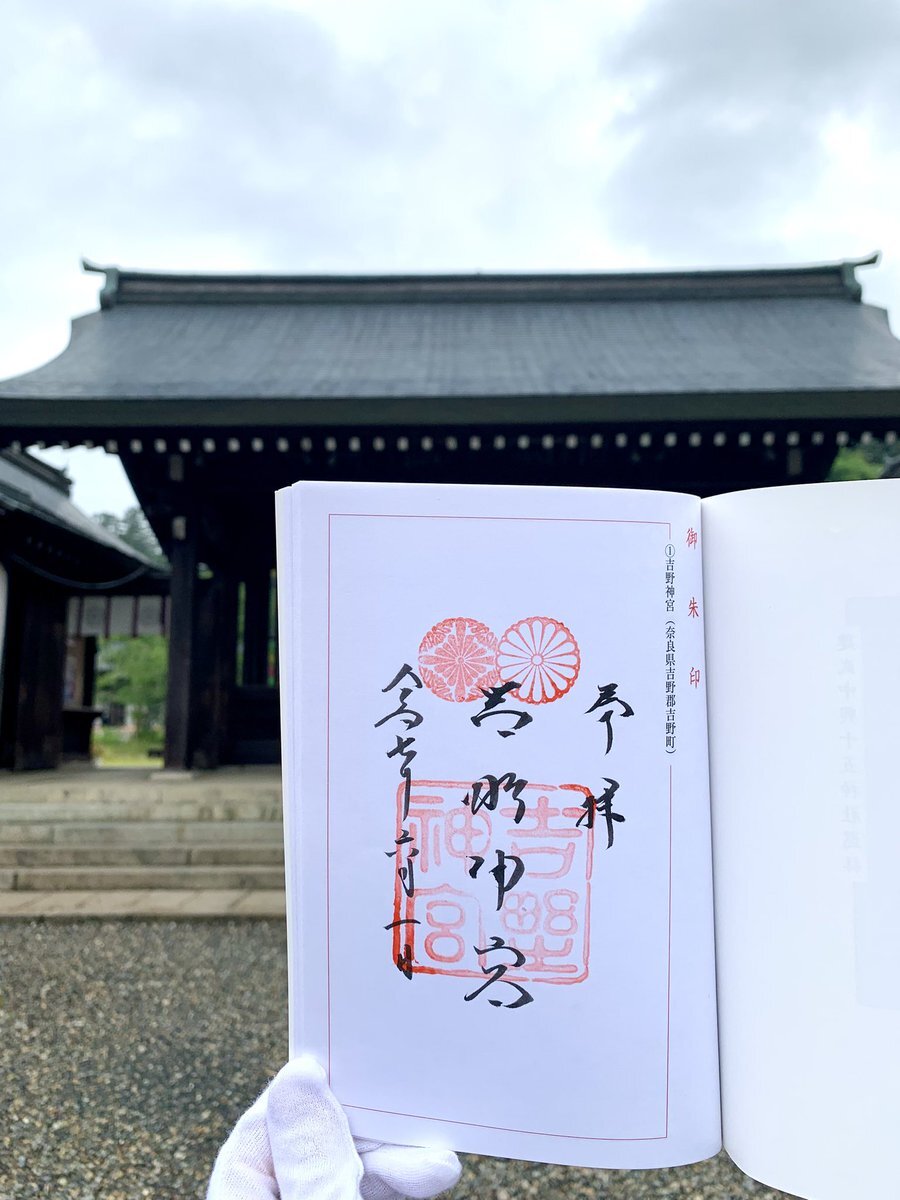 御朱印
①吉野神宮（奈良県吉野郡吉野町）
奉拝
吉野神宮
令和七年六月一日
吉野
神宮